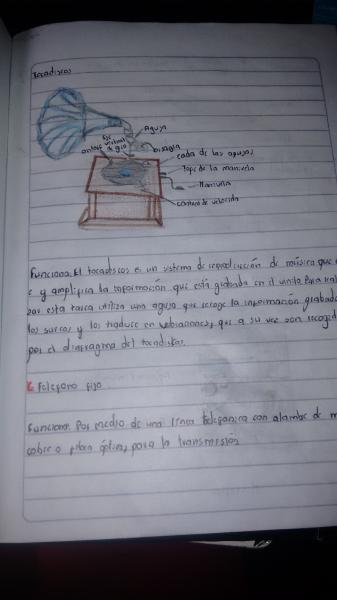 tocadiscos
Aguja
bisagra
eje
vertical
de giro
caja de las agujas
Tope de la manivela
Manivela
control de velocida
Funciona: El tocadiscos es un sistema de reproducción de música que
e y amplifica la información que está grabada en el vinilo Para
esta tarea utiliza una aguja que recoge la información grabad
los surcos y los traduce en vibraciones, que a su vez son recogid
por el diafragma del tocadiscos.
Telefono fijo
Funciona: Por medio de una línea telefonica con alambre de
cobre o fibra óptica, para la transmisión